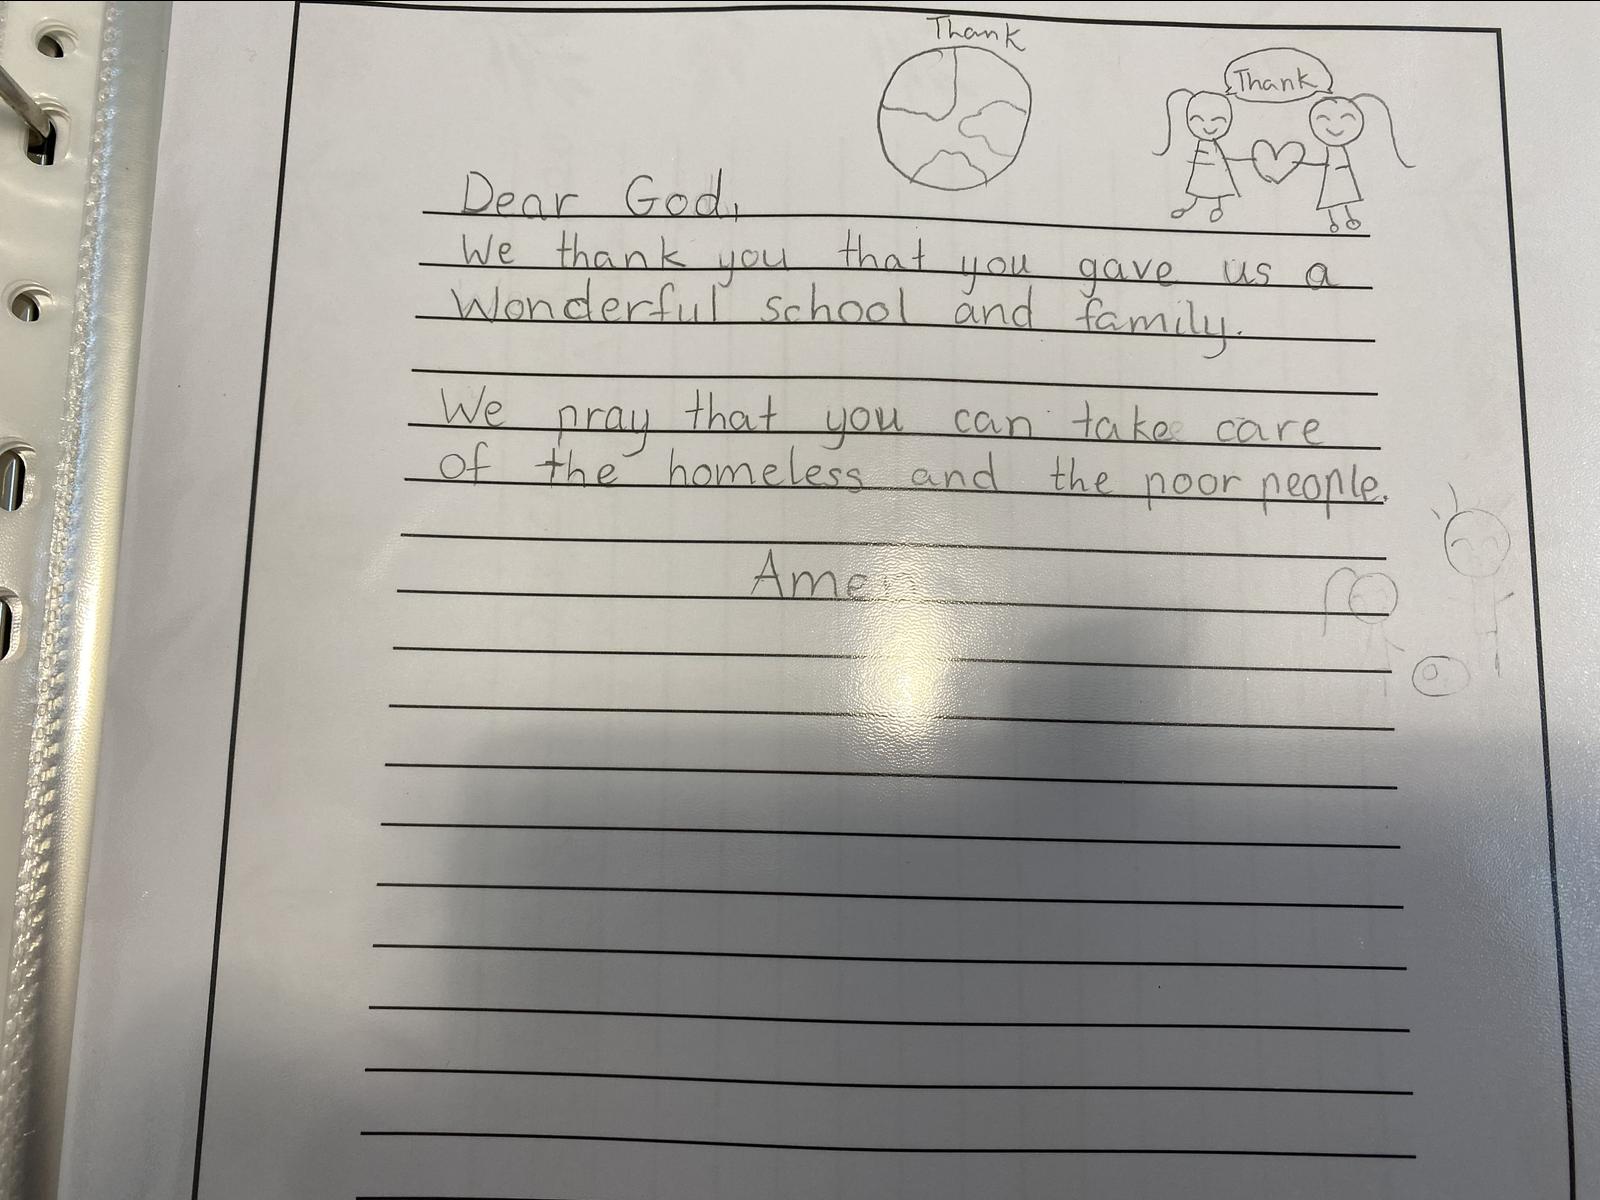 Thank
Thank
Dear God,
We thank you that you gave us a
Wonderful school and family.
We pray that you can take care
of the homeless and the poor people.
Amen